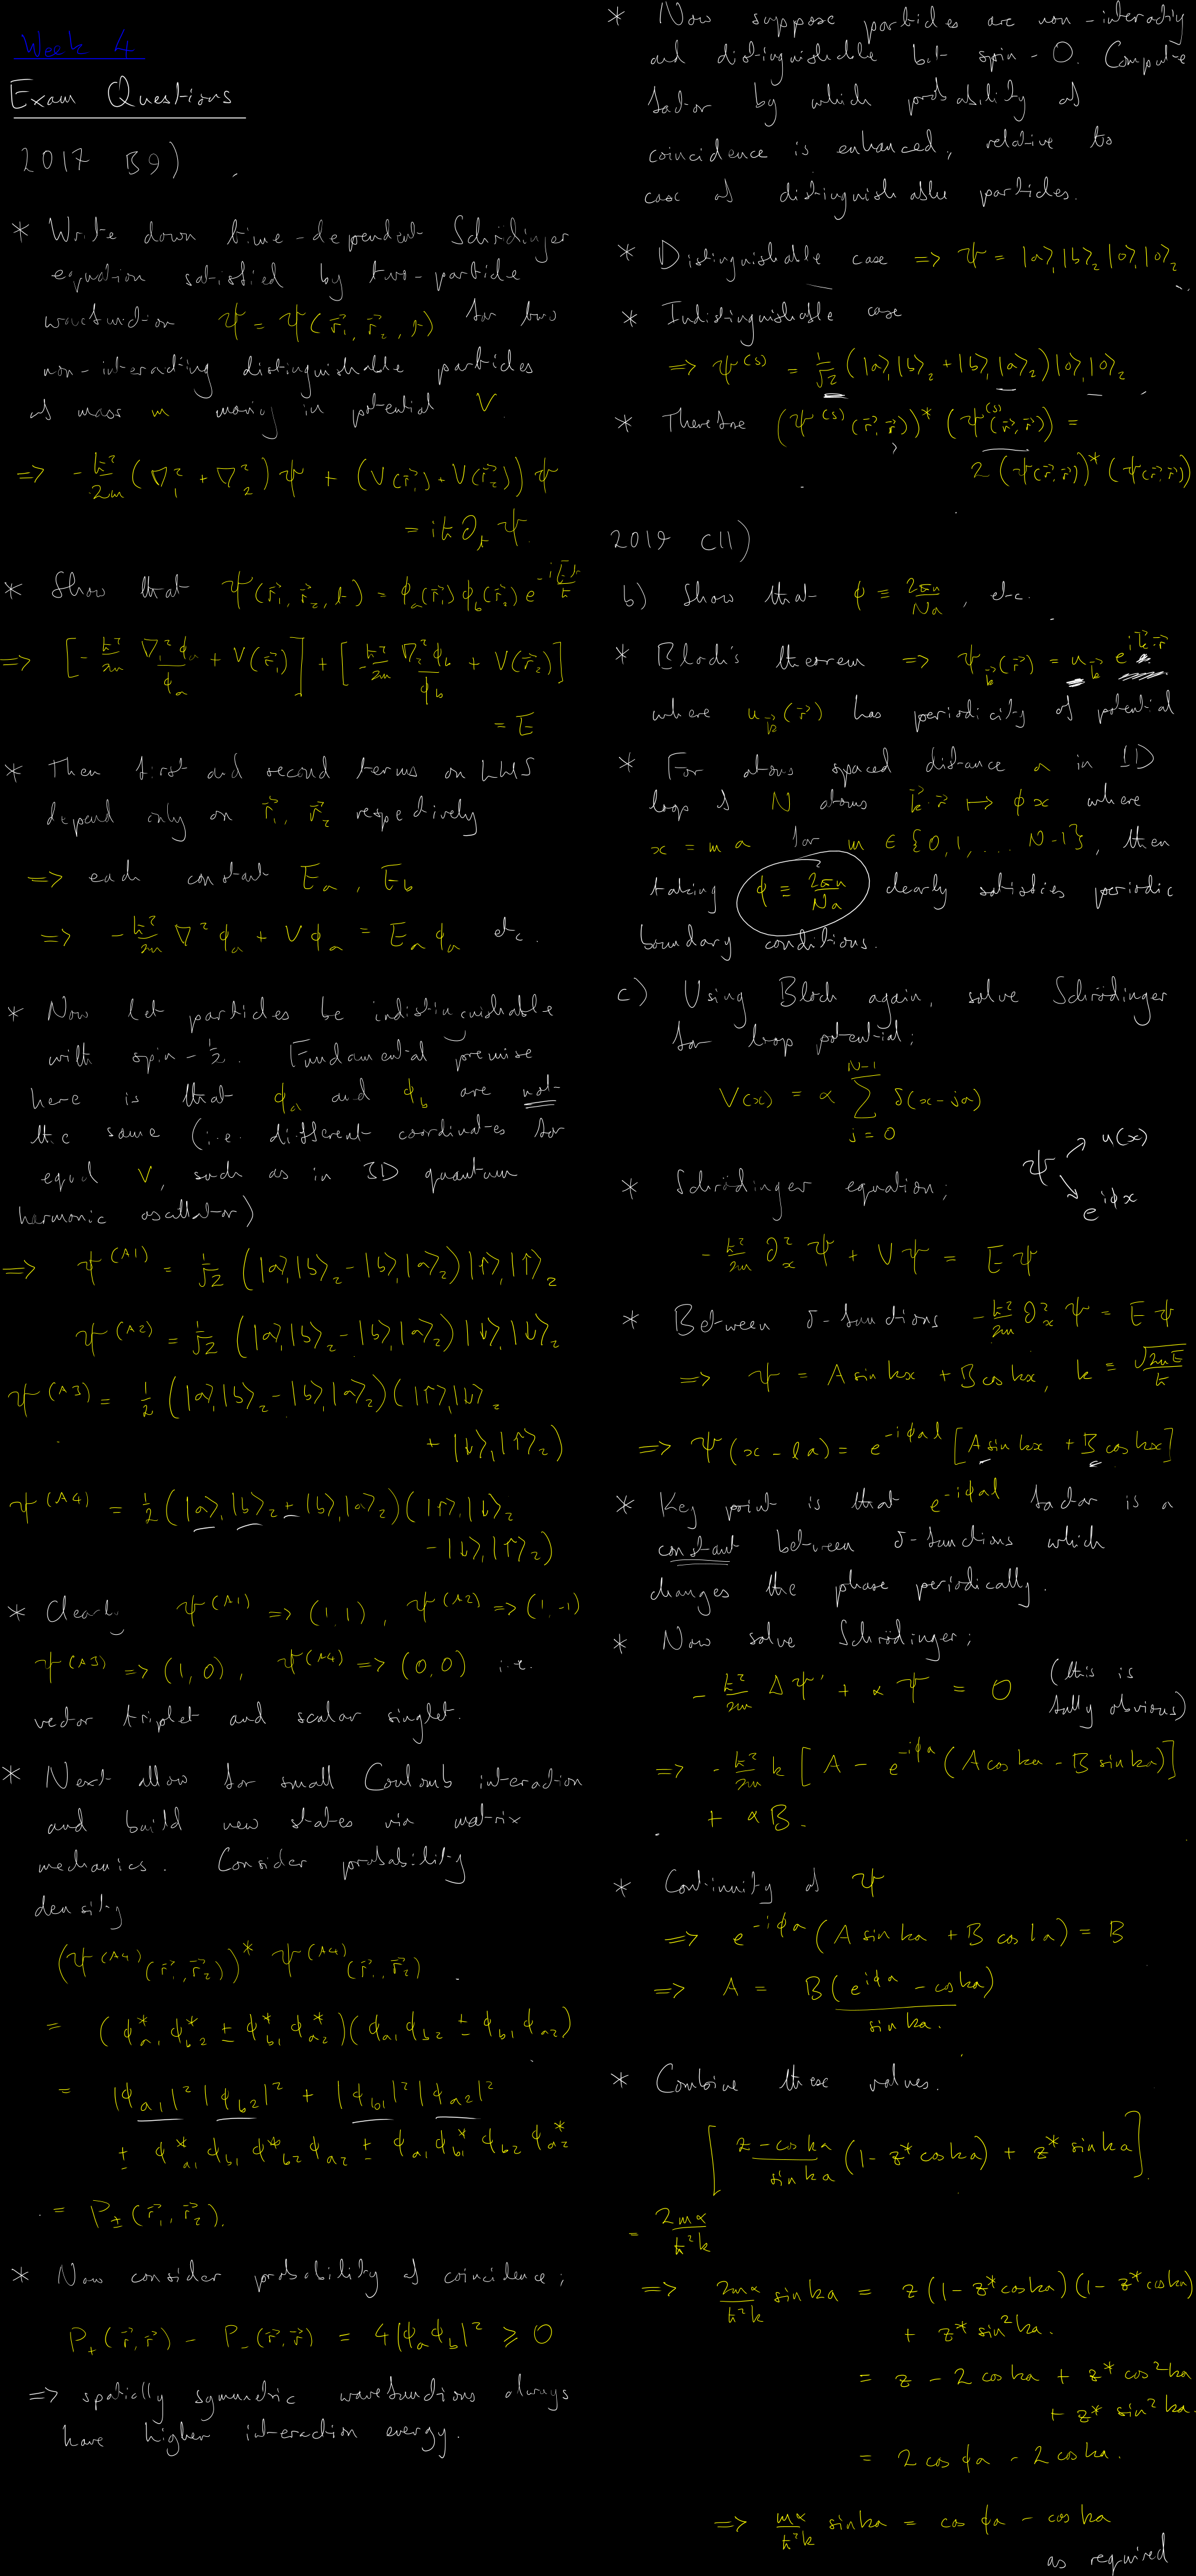 Week 4
Exam Questions
2017 B9)
* Write down time-dependent Schrödinger
equation satisfied by two-particle
wavefunction ψ = ψ(r⃗₁, r⃗₂, t) for two
non-interacting distinguishable particles
of mass m moving in potential V.
=> -ħ²/2m (∇₁² + ∇₂²)ψ + (V(r⃗₁) + V(r⃗₂))ψ
= iħ ∂ₜ ψ.
* Show that ψ(r⃗₁, r⃗₂, t) = ϕₐ(r⃗₁) ϕ_b(r⃗₂) e^{-iEt/ħ}
=> [-ħ²/2m ∇₁²ϕₐ/ϕₐ + V(r⃗₁)] + [-ħ²/2m ∇₂²ϕ_b/ϕ_b + V(r⃗₂)]
= E
* Then first and second terms on LHS
depend only on r⃗₁, r⃗₂ respectively
=> each constant Eₐ, E_b
=> -ħ²/2m ∇²ϕₐ + Vϕₐ = Eₐϕₐ etc.
* Now let particles be indistinguishable
with spin-½. Fundamental premise
here is that ϕₐ and ϕ_b are not
the same (i.e. different coordinates for
equal V, such as in 3D quantum
harmonic oscillator)
=> ψ^(A1) = 1/√2 (|a>₁|b>₂ - |b>₁|a>₂)|↑>₁|↑>₂
ψ^(A2) = 1/√2 (|a>₁|b>₂ - |b>₁|a>₂)|↓>₁|↓>₂
ψ^(A3) = 1/2 (|a>₁|b>₂ - |b>₁|a>₂)(|↑>₁|↓>₂
+ |↓>₁|↑>₂)
ψ^(A4) = 1/2 (|a>₁|b>₂ + |b>₁|a>₂)(|↑>₁|↓>₂
- |↓>₁|↑>₂)
* Clearly ψ^(A1) => (1,1), ψ^(A2) => (1,-1)
ψ^(A3) => (1,0), ψ^(A4) => (0,0) i.e.
vector triplet and scalar singlet.
* Next allow for small Coulomb interaction
and build new states via matrix
mechanics. Consider probability
density
(ψ^(A4)(r⃗₁, r⃗₂))* ψ^(A4)(r⃗₁, r⃗₂)
= (ϕ*ₐ₁ ϕ*_b2 ± ϕ*_b1 ϕ*ₐ₂)(ϕₐ₁ ϕ_b2 ± ϕ_b1 ϕₐ₂)
= |ϕₐ₁|² |ϕ_b2|² + |ϕ_b1|² |ϕₐ₂|²
± ϕ*ₐ₁ ϕ_b1 ϕ*_b2 ϕₐ₂ ± ϕₐ₁ ϕ*_b1 ϕ_b2 ϕ*ₐ₂
= P±(r⃗₁, r⃗₂).
* Now consider probability of coincidence;
P₊(r⃗, r⃗) - P₋(r⃗, r⃗) = 4|ϕₐϕ_b|² ≥ 0
=> spatially symmetric wavefunctions always
have higher interaction energy.
* Now suppose particles are non-interacting
and distinguishable but spin-0. Compute
factor by which probability of
coincidence is enhanced, relative to
case of distinguishable particles.
* Distinguishable case => ψ = |a>₁|b>₂|0>₁|0>₂
* Indistinguishable case
=> ψ^(S) = 1/√2 (|a>₁|b>₂ + |b>₁|a>₂)|0>₁|0>₂
* Therefore (ψ^(S)(r⃗, r⃗))* (ψ^(S)(r⃗, r⃗)) =
2(ψ(r⃗, r⃗))* (ψ(r⃗, r⃗))
2019 C11)
b) Show that ϕ ≡ 2πn/Na, etc.
* Bloch's theorem => ψ_k⃗(r⃗) = u_k⃗ e^{ik⃗·r⃗}
where u_k⃗(r⃗) has periodicity of potential
* For atoms spaced distance a in 1D
loop of N atoms k⃗·r⃗ ↦ ϕx where
x = ma for m ∈ {0, 1, ... N-1}, then
taking ϕ ≡ 2πn/Na clearly satisfies periodic
boundary conditions.
c) Using Bloch again, solve Schrödinger
for loop potential;
V(x) = α Σ_{j=0}^{N-1} δ(x - ja)
ψ ↗ u(x)
↘ e^{iϕx}
* Schrödinger equation;
-ħ²/2m ∂ₓ² ψ + Vψ = Eψ
* Between δ-functions -ħ²/2m ∂ₓ² ψ = Eψ
=> ψ = A sin kx + B cos kx, k = √(2mE)/ħ
=> ψ(x - la) = e^{-iϕal} [A sin kx + B cos kx]
* Key point is that e^{-iϕal} factor is a
constant between δ-functions which
changes the phase periodically.
* Now solve Schrödinger;
-ħ²/2m Δψ' + αψ = 0 (this is
fully obvious)
=> -ħ²/2m k [A - e^{-iϕa}(A cos ka - B sin ka)]
+ αB.
* Continuity of ψ
=> e^{-iϕa}(A sin ka + B cos ka) = B
=> A = B(e^{iϕa} - cos ka)/sin ka.
* Combine these values.
[(z - cos ka)/sin ka (1 - z* cos ka) + z* sin ka]
= 2mα/ħ²k
=> 2mα/ħ²k sin ka = z(1 - z* cos ka)(1 - z* cos ka)
+ z* sin² ka.
= z - 2 cos ka + z* cos² ka
+ z* sin² ka.
= 2 cos ϕa - 2 cos ka.
=> mα/ħ²k sin ka = cos ϕa - cos ka
as required